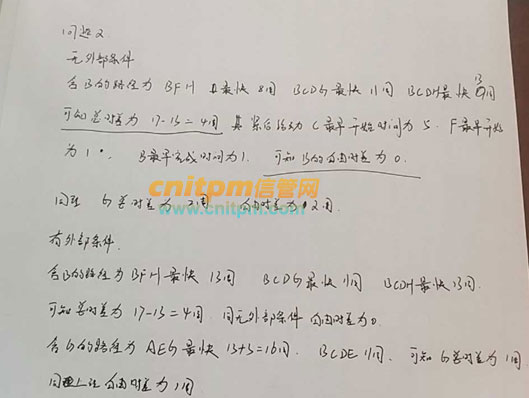 问题2
无外部条件
含B的路径为 BFH 最快8周 BCDG最快11周 BCDH最快13周
可知总时差为 17-13=4周 其紧后活动C最早开始时间为5. F最早开始
为1. B最早完成时间为1. 可知B的自由时差为0.
cnitpm信管网
www.cnitpm.com
同理 G总时差为2周 自由时差为2周.
有外部条件.
含B的路径为BFH最快13周 BCDG最快11周 BCDH最快13周.
可知总时差为17-13=4周. 同无外部条件 自由时差为0.
含G的路径为 AEG最快 13+3=16周. BCDE 11周. 可知G总时差为1周.
同理 自由时差为1周